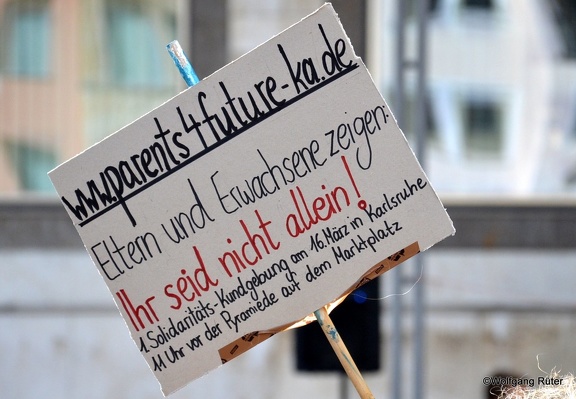 www.parents4future-ka.de
Eltern und Erwachsene zeigen:
Ihr seid nicht allein!
1. Solidaritäts-Kundgebung am 16. März in Karlsruhe
11 Uhr vor der Pyramiede auf dem Marktplatz
©Wolfgang Rüter